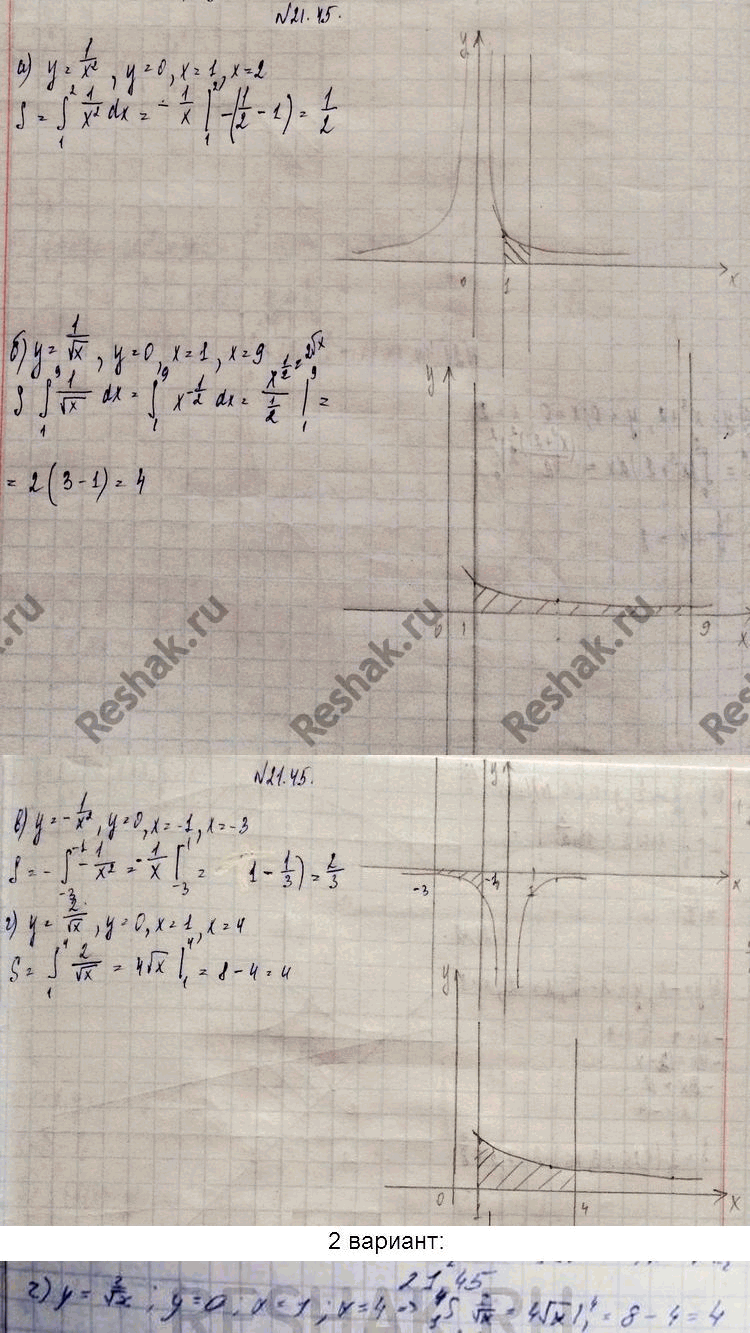 №21.45.
а) y = 1/x², y=0, x=1, x=2
S = ∫₁² 1/x² dx = -1/x |₁² -(1/2 - 1) = 1/2
y
0 1 x
б) y = 1/√x, y=0, x=1, x=9
S ∫₁⁹ 1/√x dx = ∫₁⁹ x^(-1/2) dx = x^(1/2)/(1/2) = 2√x |₁⁹ =
= 2(3-1) = 4
y
0 1 9 x
Reshak.ru
Reshak.ru
Reshak.ru
№21.45.
в) y = -1/x², y=0, x=-1, x=-3
S = -∫₋₃⁻¹ -1/x² = -1/x |₋₃⁻¹ = 1 - 1/3) = 2/3
y
-3 -3 1 x
г) y = 2/√x, y=0, x=1, x=4
S = ∫₁⁴ 2/√x = 4√x |₁⁴ = 8-4=4
y
0 1 4 x
2 вариант:
21.45
г) y = 2/√x ; y=0 ; x=1 ; x=4 => ₁⁴∫ 2/√x = 4√x |₁⁴ = 8-4=4